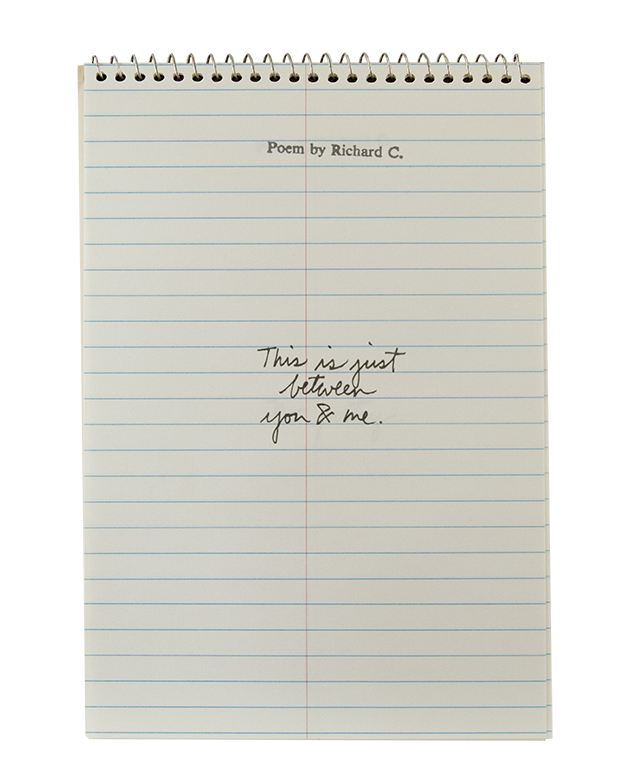 Poem by Richard C.
This is just
between
you & me.